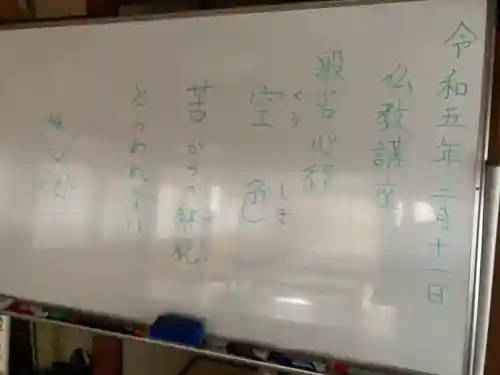 令和五年二月十一日
仏教講座
般若心経
空 くう 色 しき
苦からの解脱
とらわれない